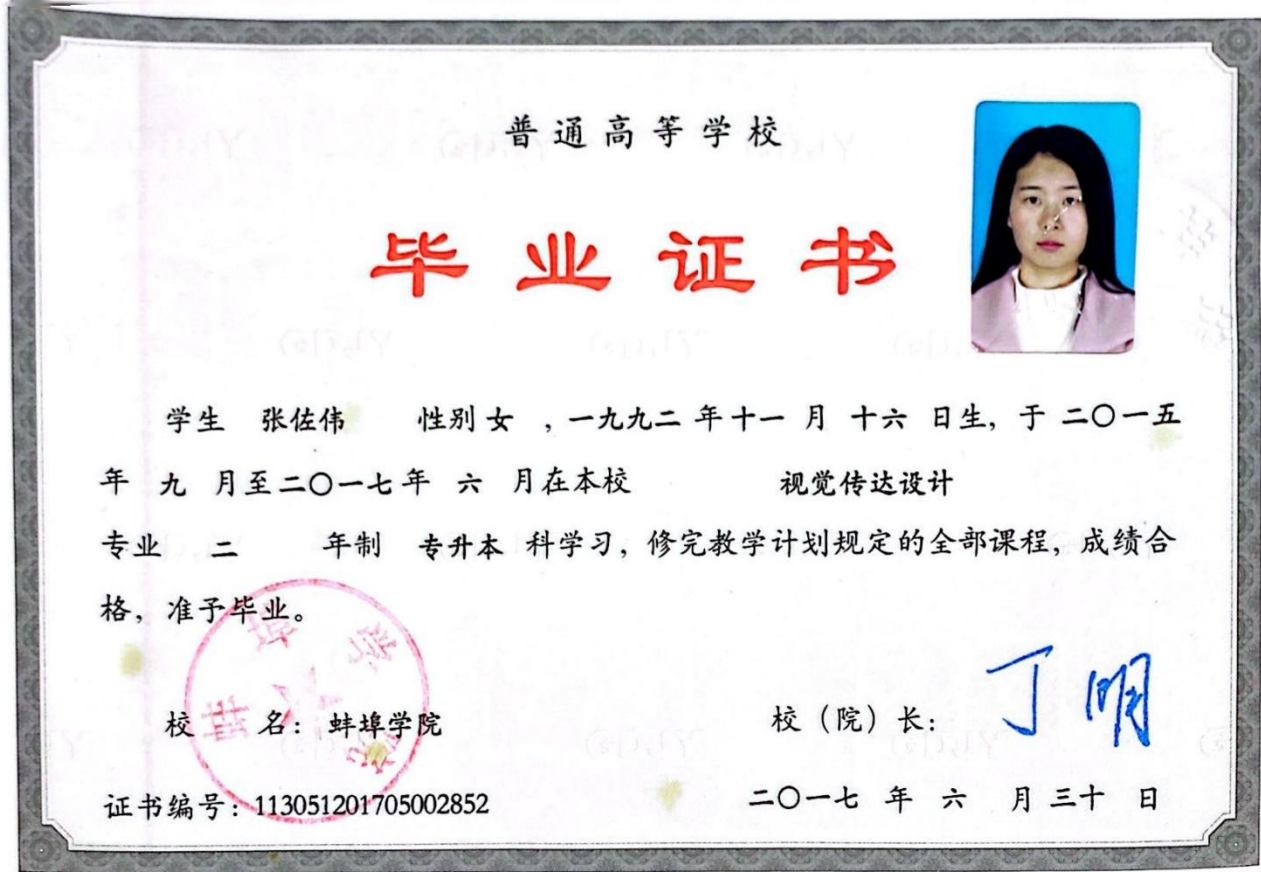 普通高等学校
毕业证书
学生 张佐伟 性别 女 ，一九九二 年 十一 月 十六 日生，于 二〇一五
年 九 月至 二〇一七 年 六 月在本校 视觉传达设计
专业 二 年制 专升本 科学习，修完教学计划规定的全部课程，成绩合
格，准予毕业。
蚌埠学院
校 名：蚌埠学院
校（院）长：丁明
证书编号：113051201705002852
二〇一七 年 六 月 三十 日